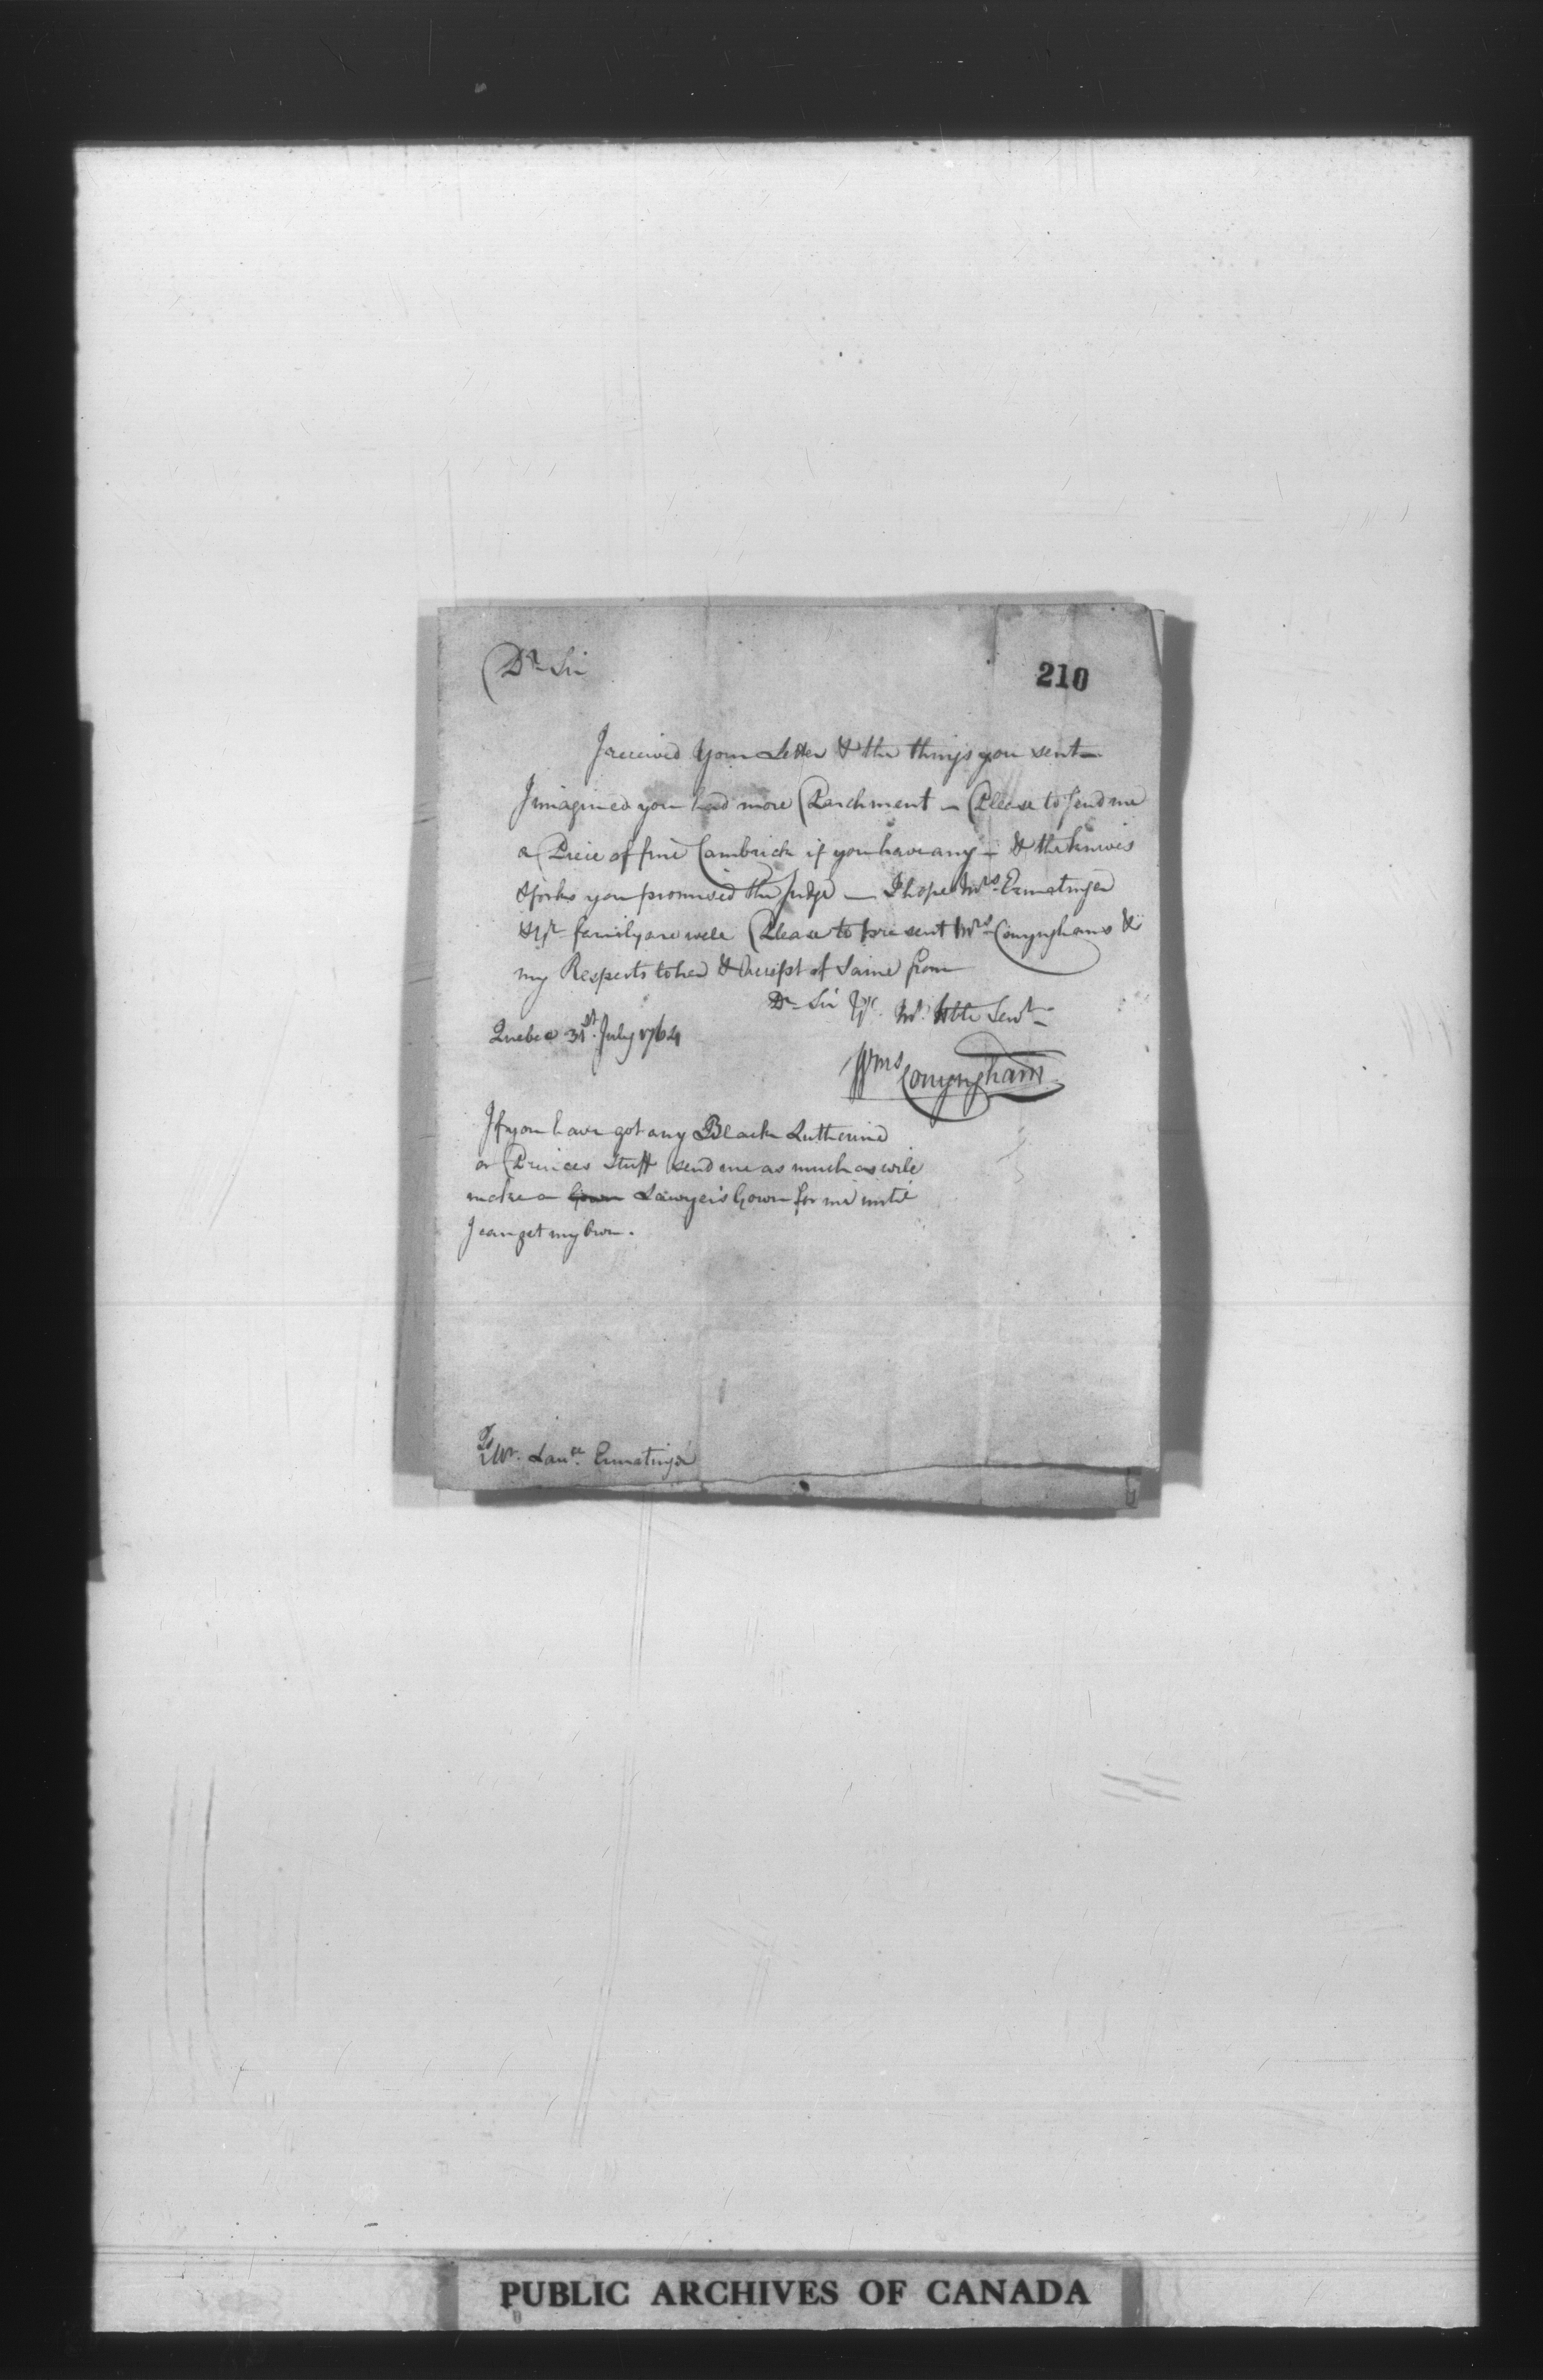 Dr Sir
210
I received Your Letter & the things you sent —
I imagined you had more Parchment — Please to send me
a Piece of fine Cambrick if you have any — & the knives
& forks you promised the Judge — I hope Mrs Ermatinger
& Yr family are well Please to present Mrs Conynghams &
my Respects to her & Accept of Same from
Dr Sir Yr M. Hble Servt
Quebec 31st July 1764
Wms Conyngham
If you have got any Black Lutherine
or Princes Stuff send me as much as will
make a Gown Lawyer's Gown for me until
I can get my Own.
To
Mr. Lawce Ermatinger
PUBLIC ARCHIVES OF CANADA